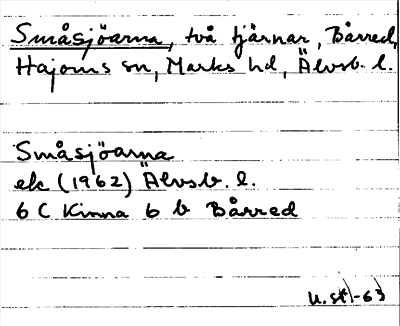 Småsjöarna, två tjärnar, Bårred,
Hajoms sn, Marks hd, Älvsb. l.
Småsjöarna
ek (1962) Älvsb. l.
6 C Kinna 6 b Bårred
U.st. -63